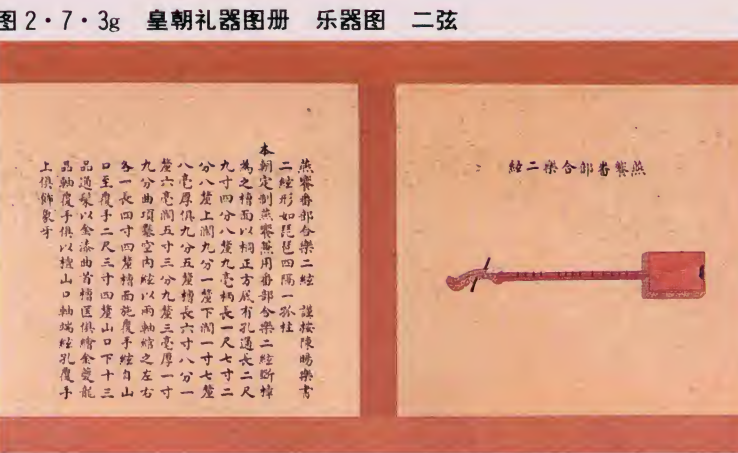 图2·7·3g 皇朝礼器图册 乐器图 二弦
燕饗番部合樂二絃
燕饗番部合樂二絃 謹按陳暘樂書
二絃形如琵琶四隔一孤柱
本朝定制燕饗兼用番部合樂二絃斲樟
為之槽面以桐正方底有孔通長二尺
九寸四分八釐九毫柄長一尺七寸二
分八釐上濶九分一釐下濶一寸七釐
八毫厚俱九分五釐槽長六寸八分一
釐六毫濶五寸三分九釐三毫厚一寸
九分曲項鑿空內絃以兩軸綰之左右
各一長四寸四釐槽面施覆手絃自山
口至覆手二尺三寸四釐山口下十三
品通髹以金漆曲首槽匡俱繪金夔龍
品軸覆手俱以檀山口軸端絃孔覆手
上俱飾象牙